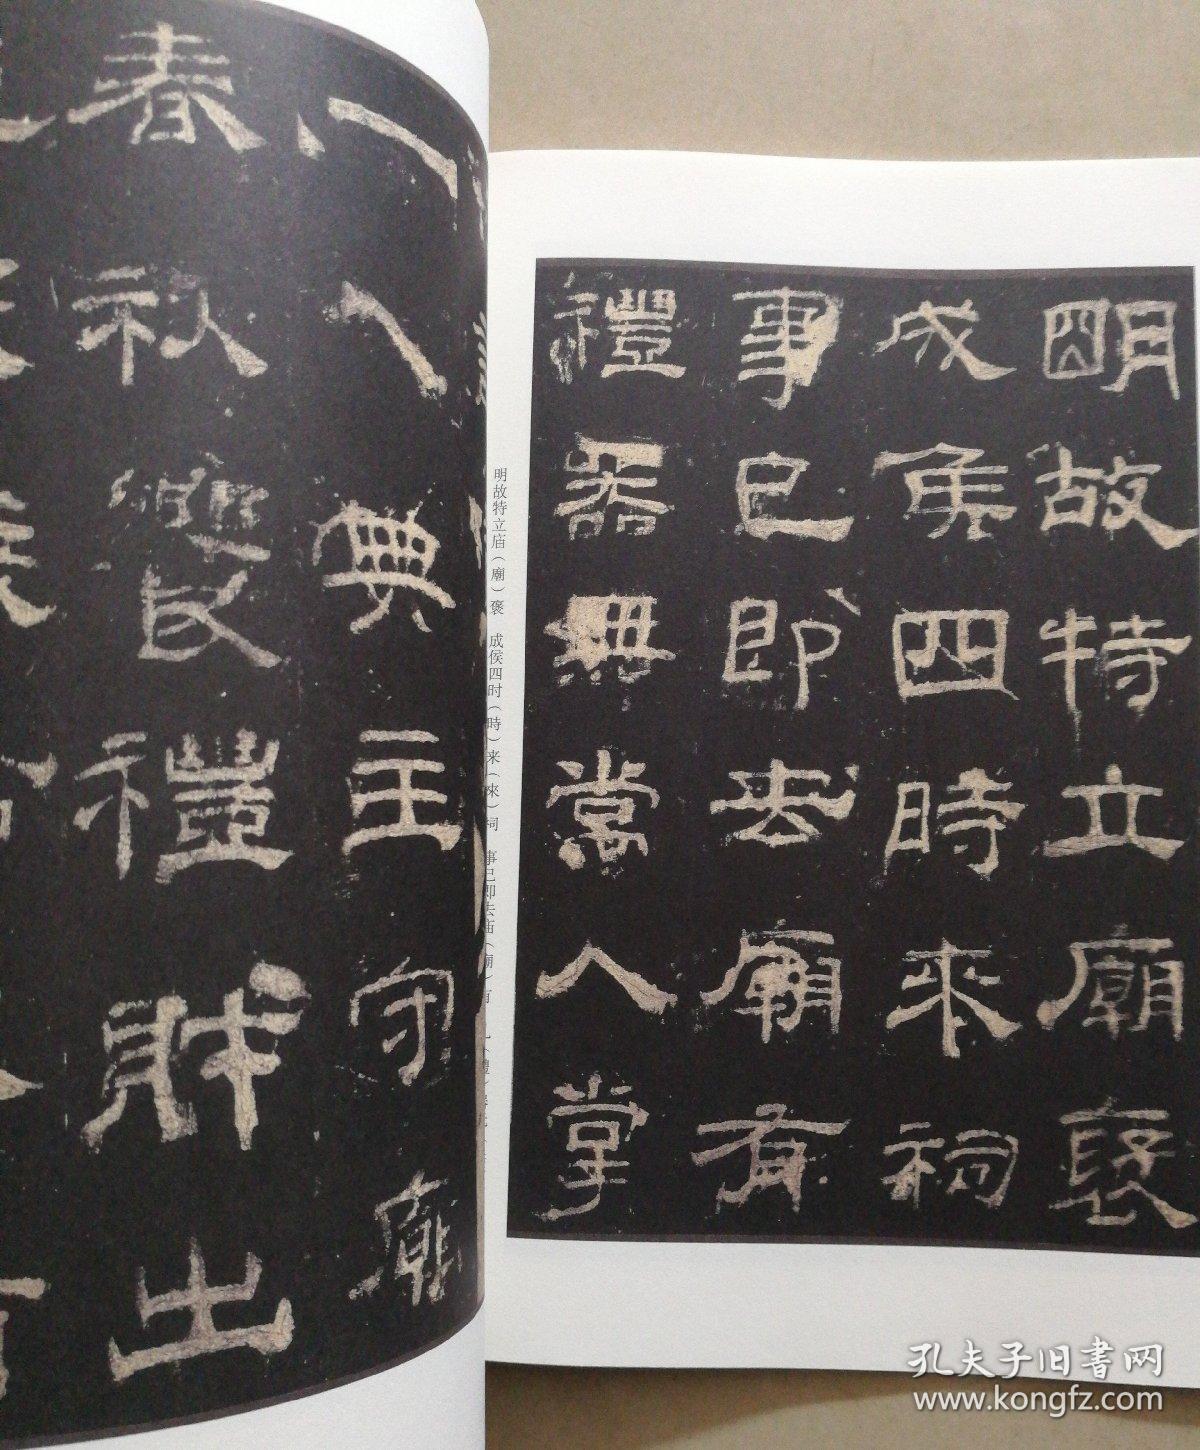 明故特立廟褒
成侯四時來祠
事已即去廟有
禮器無常人掌
一人典主守廟
春秋饗禮財出
明故特立庙（廟）褒 成侯四时（時）来（來）祠 事已即去庙（廟）有
（禮）
孔夫子旧書网
www.kongfz.com